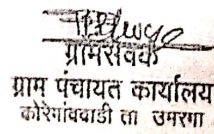 ग्रामसेवक
ग्राम पंचायत कार्यालय
कोरेगांववाडी ता उमरगा